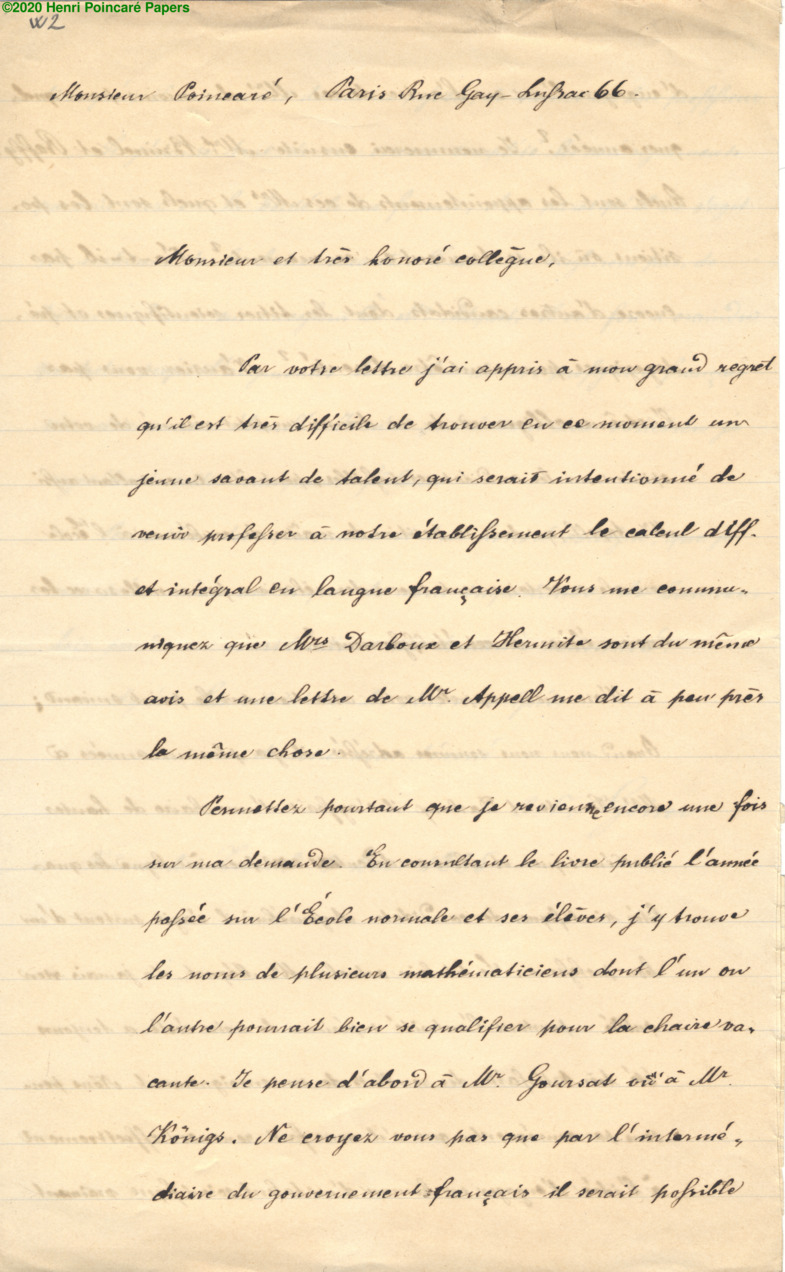 ©2020 Henri Poincaré Papers
W2
Monsieur Poincaré, Paris Rue Gay-Lussac 66.
Monsieur et très honoré collègue,
Par votre lettre j'ai appris à mon grand regret
qu'il est très difficile de trouver en ce moment un
jeune savant de talent, qui serait intentionné de
venir professer à notre établissement le calcul diff.
et intégral en langue française. Vous me commu-
niquez que Mrs Darboux et Hermite sont du même
avis et une lettre de Mr. Appell me dit à peu près
la même chose.
Permettez pourtant que je revienne encore une fois
sur ma demande. En consultant le livre publié l'année
passée sur l'École normale et ses élèves, j'y trouve
les noms de plusieurs mathématiciens dont l'un ou
l'autre pourrait bien se qualifier pour la chaire va-
cante. Je pense d'abord à Mr. Goursat ou à Mr.
Königs. Ne croyez vous pas que par l'intermé-
diaire du gouvernement français il serait possible